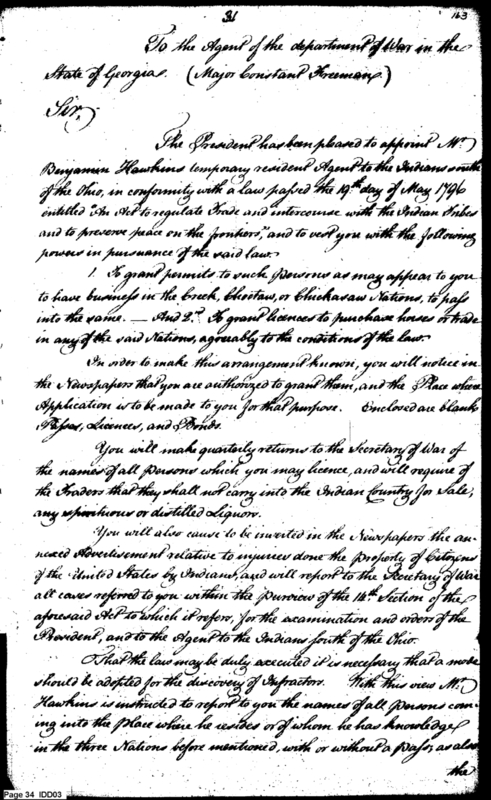 31
163
To the Agent of the department of War in the
State of Georgia. (Major Constant Freeman.)
Sir,
The President has been pleased to appoint Mr.
Benjamin Hawkins temporary resident Agent to the Indians south
of the Ohio, in conformity with a law passed the 19th day of May 1796
entitled "An Act to regulate Trade and intercourse with the Indian Tribes
and to preserve peace on the fronteers," and to vest you with the following
powers in pursuance of the said law.
1. To grant permits to such Persons as may appear to you
to have business in the Creek, Choctaw, or Chickasaw Nations, to pass
into the same. — And 2d. To grant licences to purchase horses or trade
in any of the said Nations, agreeably to the conditions of the law.
In order to make this arrangement known, you will notice in
the Newspapers that you are authorized to grant them, and the Place where
Application is to be made to you for that purpose. Enclosed are blank
Passes, Licences, and Bonds.
You will make quarterly returns to the Secretary of War of
the names of all Persons which you may licence, and will require of
the Traders that they shall not carry into the Indian Country for Sale,
any spirituous or distilled Liquors.
You will also cause to be inserted in the Newspapers the an-
nexed Advertisement relative to injuries done the Property of Citizens
of the United States by Indians, and will report to the Secretary of War
all cases referred to you within the Purview of the 14th Section of the
aforesaid Act to which it refers, for the examination and orders of the
President, and to the Agent to the Indians south of the Ohio.
That the law may be duly executed it is necessary that a mode
should be adopted for the discovery of Infractors. With this view Mr.
Hawkins is instructed to report to you the names of all Persons com-
ing into the Place where he resides or of whom he has knowledge
in the three Nations before mentioned, with or without a Pass, as also
the
Page 34 IDD03